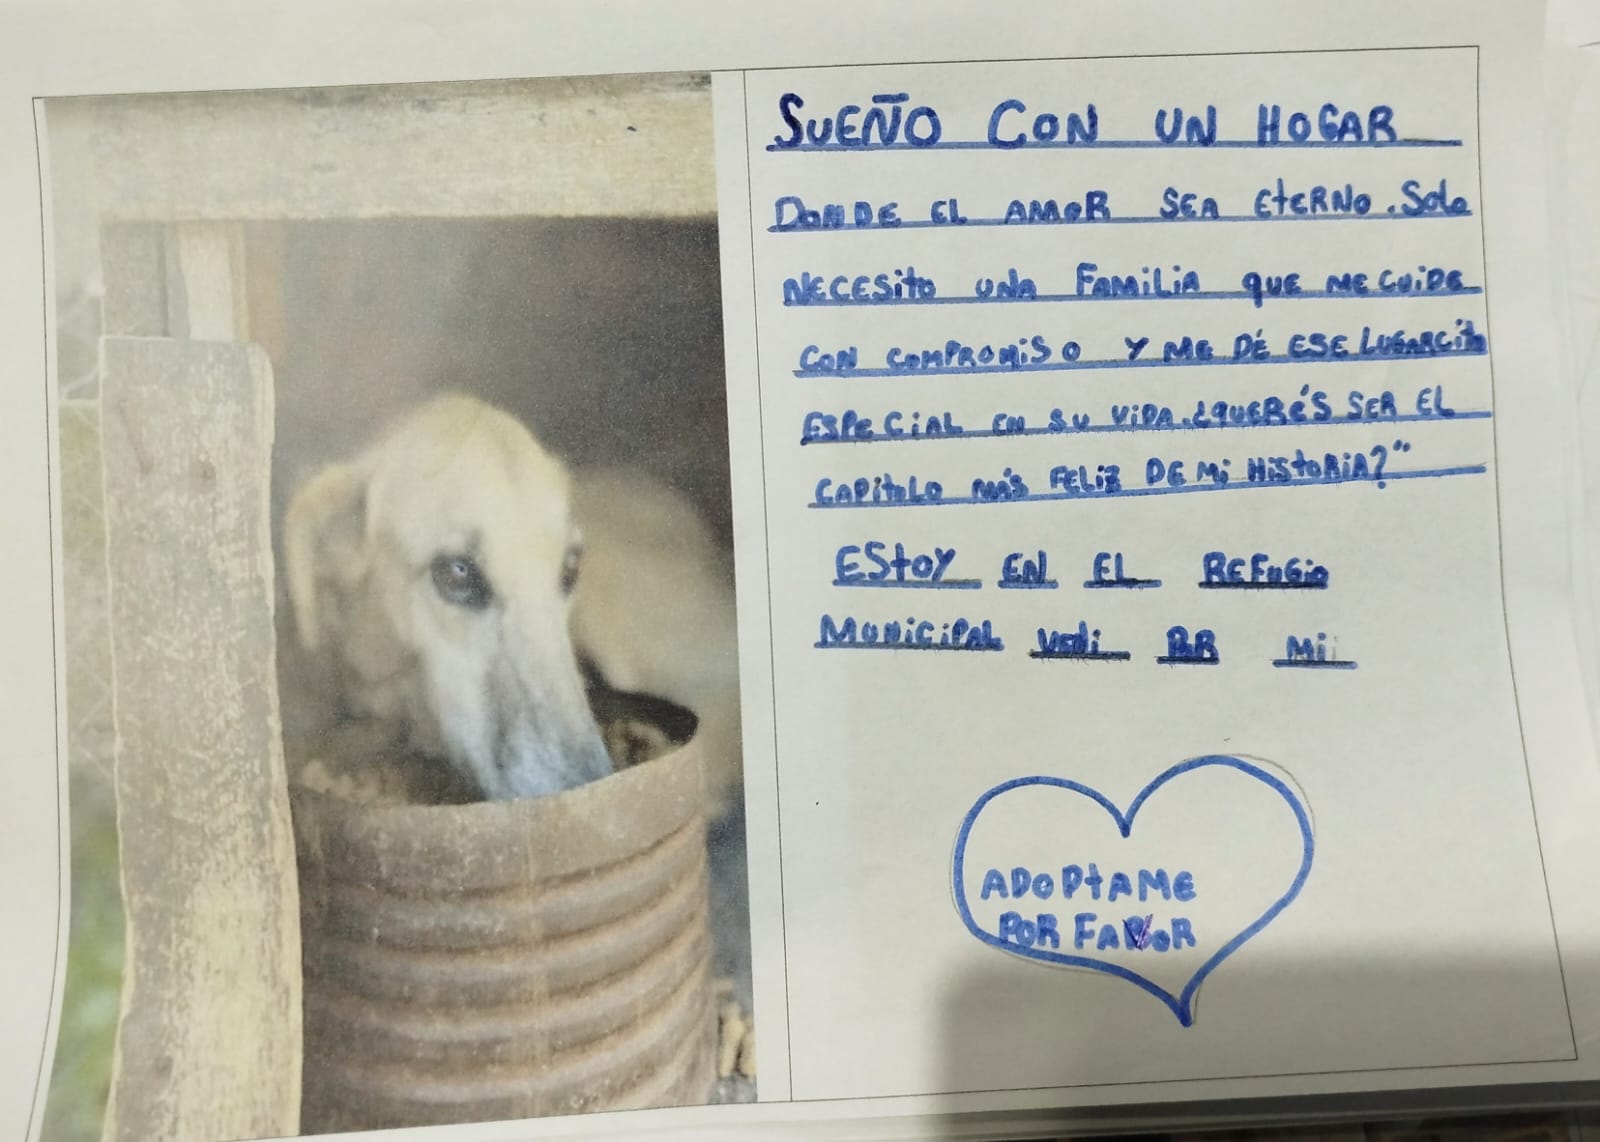 SUEÑO CON UN HOGAR
DONDE EL AMOR SEA ETERNO. Solo
NECESITO UNA FAMILIA QUE ME CUIDE
CON COMPROMISO Y ME DÉ ESE LUGARCITO
ESPECIAL EN SU VIDA. ¿QUERÉS SER EL
CAPITULO MÁS FELIZ DE MI HISTORIA?"
ESTOY EN EL REFUGIO
MUNICIPAL VENI POR MI
ADOPTAME
POR FAVOR